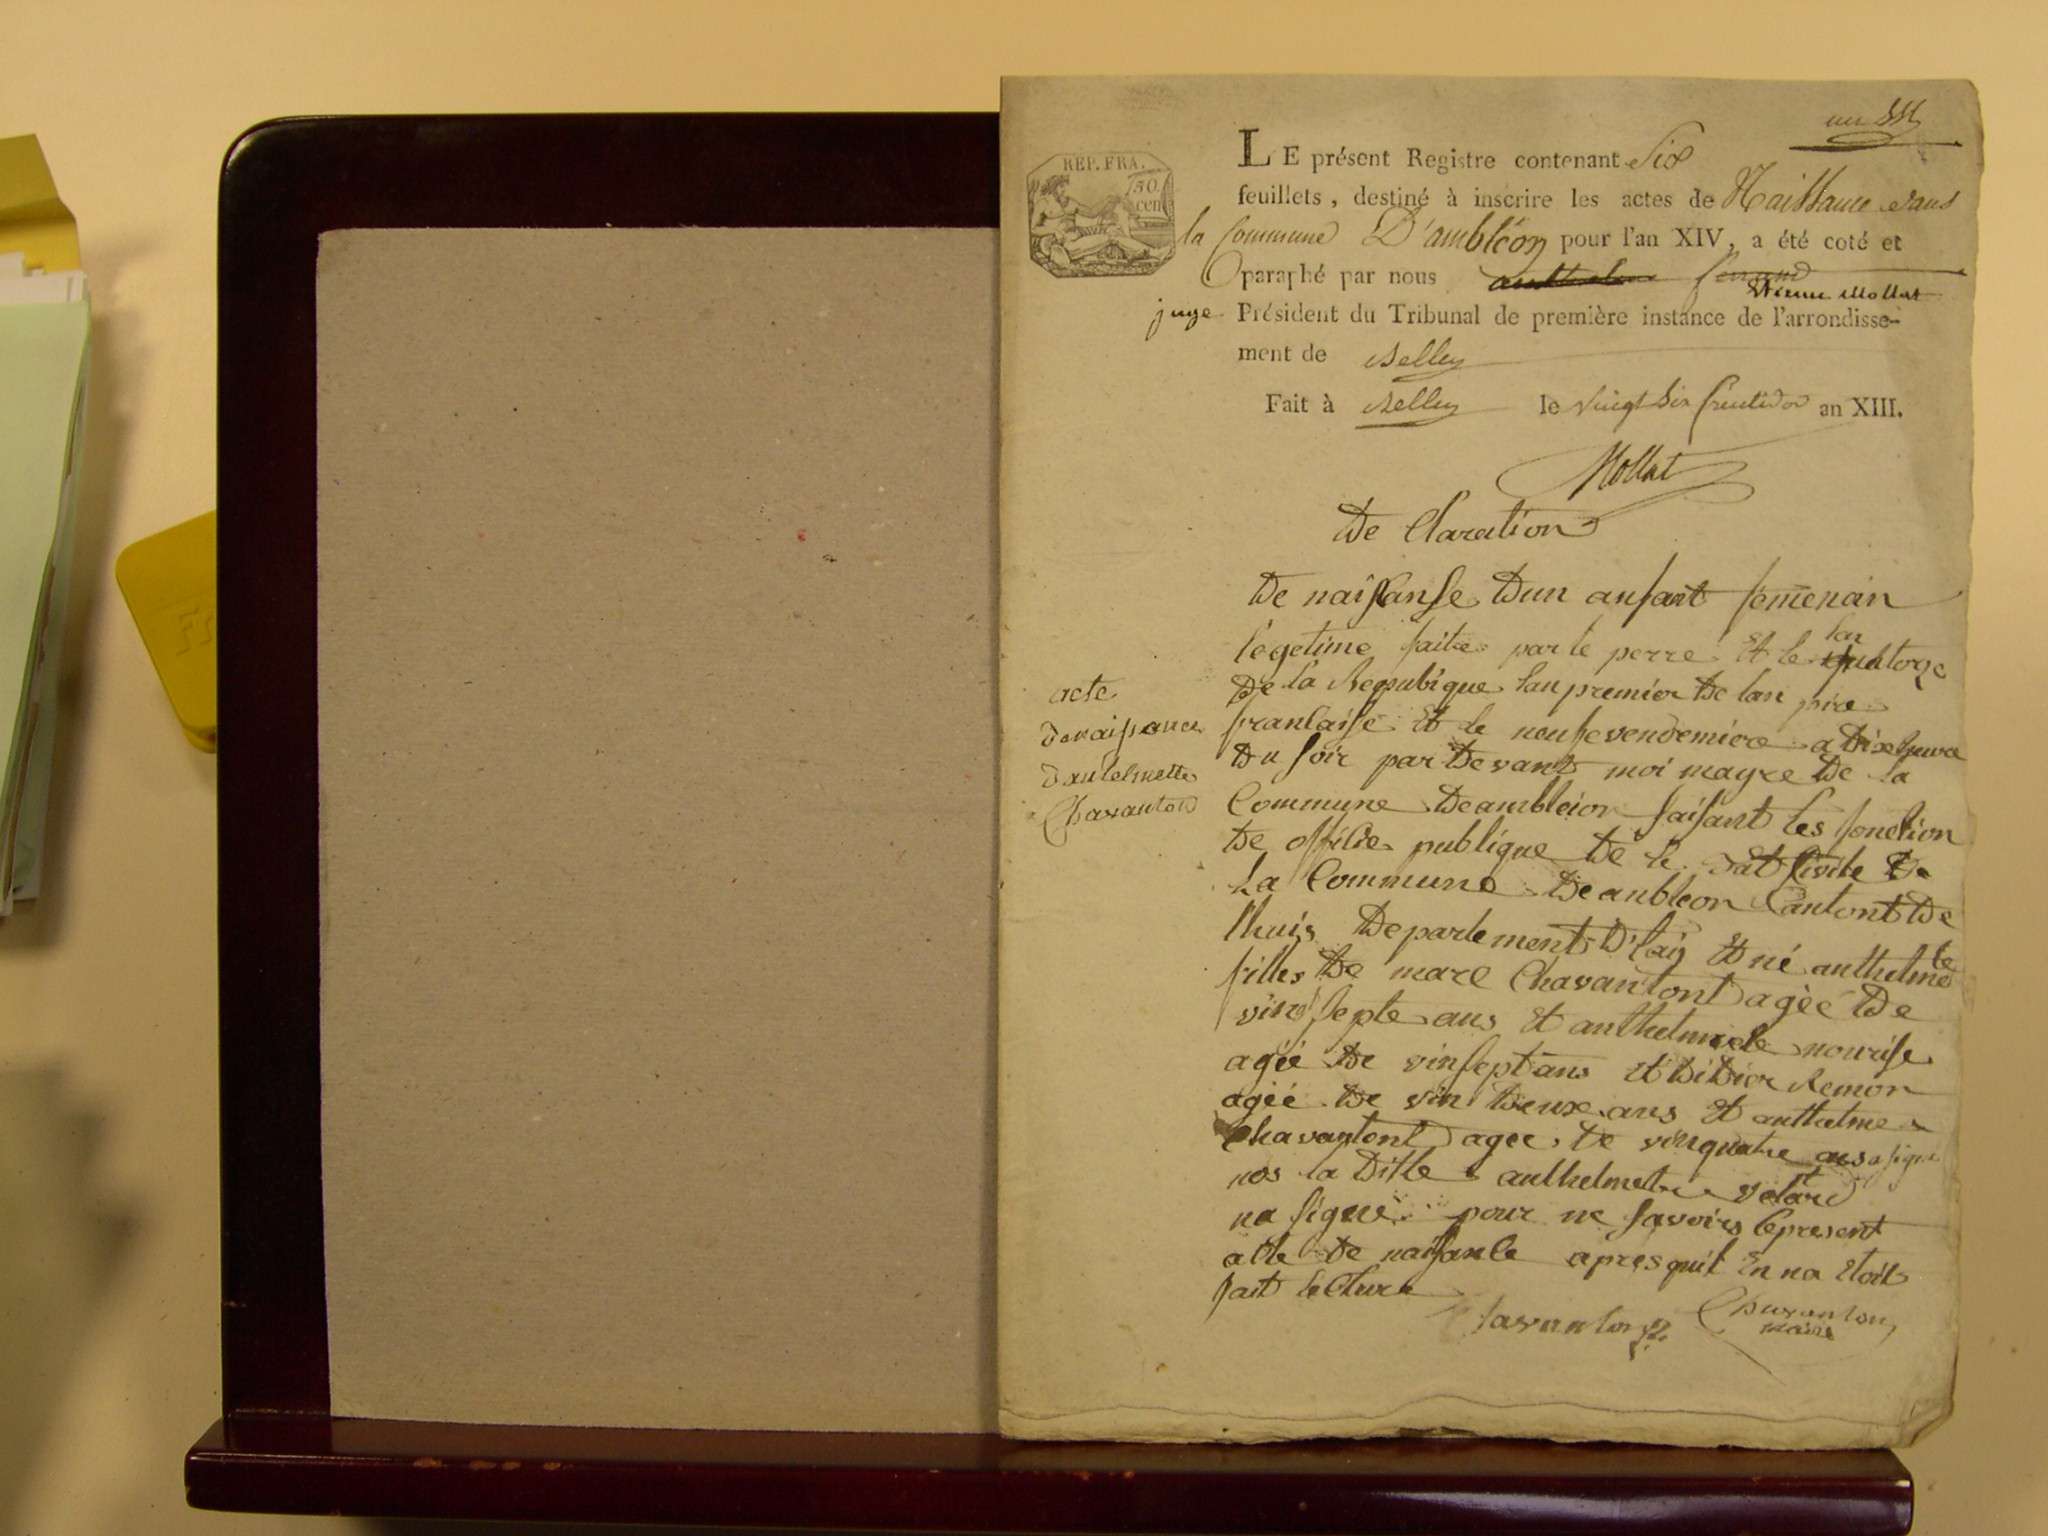 un
REP. FRA.
50
cen
LE présent Registre contenant Six
feuillets, destiné à inscrire les actes de Naissance dans
la Commune D'ambléon pour l'an XIV, a été coté et
paraphé par nous
Mollat
juge Président du Tribunal de première instance de l'arrondisse-
ment de Belley
Fait à Belley le vingt Six fructidor an XIII.
Mollat
De Claration
De naissanse Dun anfant femenain
legetime faite par le perre Et le lan quatorze
De la Repubique lan premier De lan
francaise Et le neufe vendemiere a Dixe heure
Du soir par Devant moi mayre De la
Commune De ambleion faisant les fonction
De officie publique De le tat Civile De
La Commune De anbleon Cantont De
lhuis Departement D'lain Et né anthelmete
filles De marc Chavantont agèe De
vint septe ans Et anthelmete nourise
agèe De vinsept ans Et Didier Remon
agèe De vin Deuxe ans Et anthelme
Chavantont agee De vinquatre ans a signe
nos la Ditte anthelmete
na signe pour ne savoirs le present
atte De naissance apres quil En na Etoit
fait leCture
acte
de naissance
dantelmette
Chavanton
Chavanton
maire